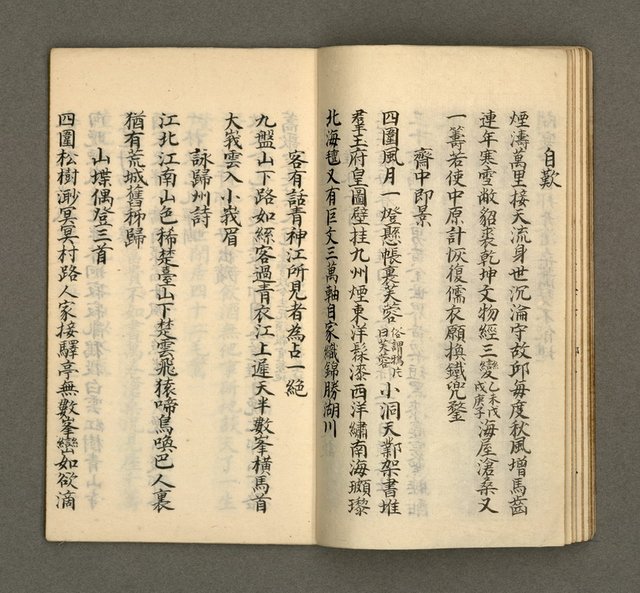 自歎
煙濤萬里接天流身世沉淪守故邱每度秋風增馬齒
連年寒雪敝貂裘乾坤文物經三變乙未戊戌庚子海屋滄桑又
一籌若使中原計恢復儒衣願換鐵兜鍪
齋中即景
四圍風月一燈懸帳裏芙蓉俗謂鴉片曰芙蓉小洞天鄴架書堆
羣玉府皇圖壁挂九州煙東洋髹漆西洋繡南海玻瓈
北海氈又有巨文三萬軸自家織錦勝湖川
客有話青神江所見者為占一絕
九盤山下路如絲客過青衣江上遲天半數峯橫馬首
大峩雲入小峩眉
詠歸州詩
江北江南山色稀楚臺山下楚雲飛猿啼鳥喚巴人裏
猶有荒城舊秭歸
山堞偶登三首
四圍松樹渺冥冥村路人家接驛亭無數峯巒如欲滴